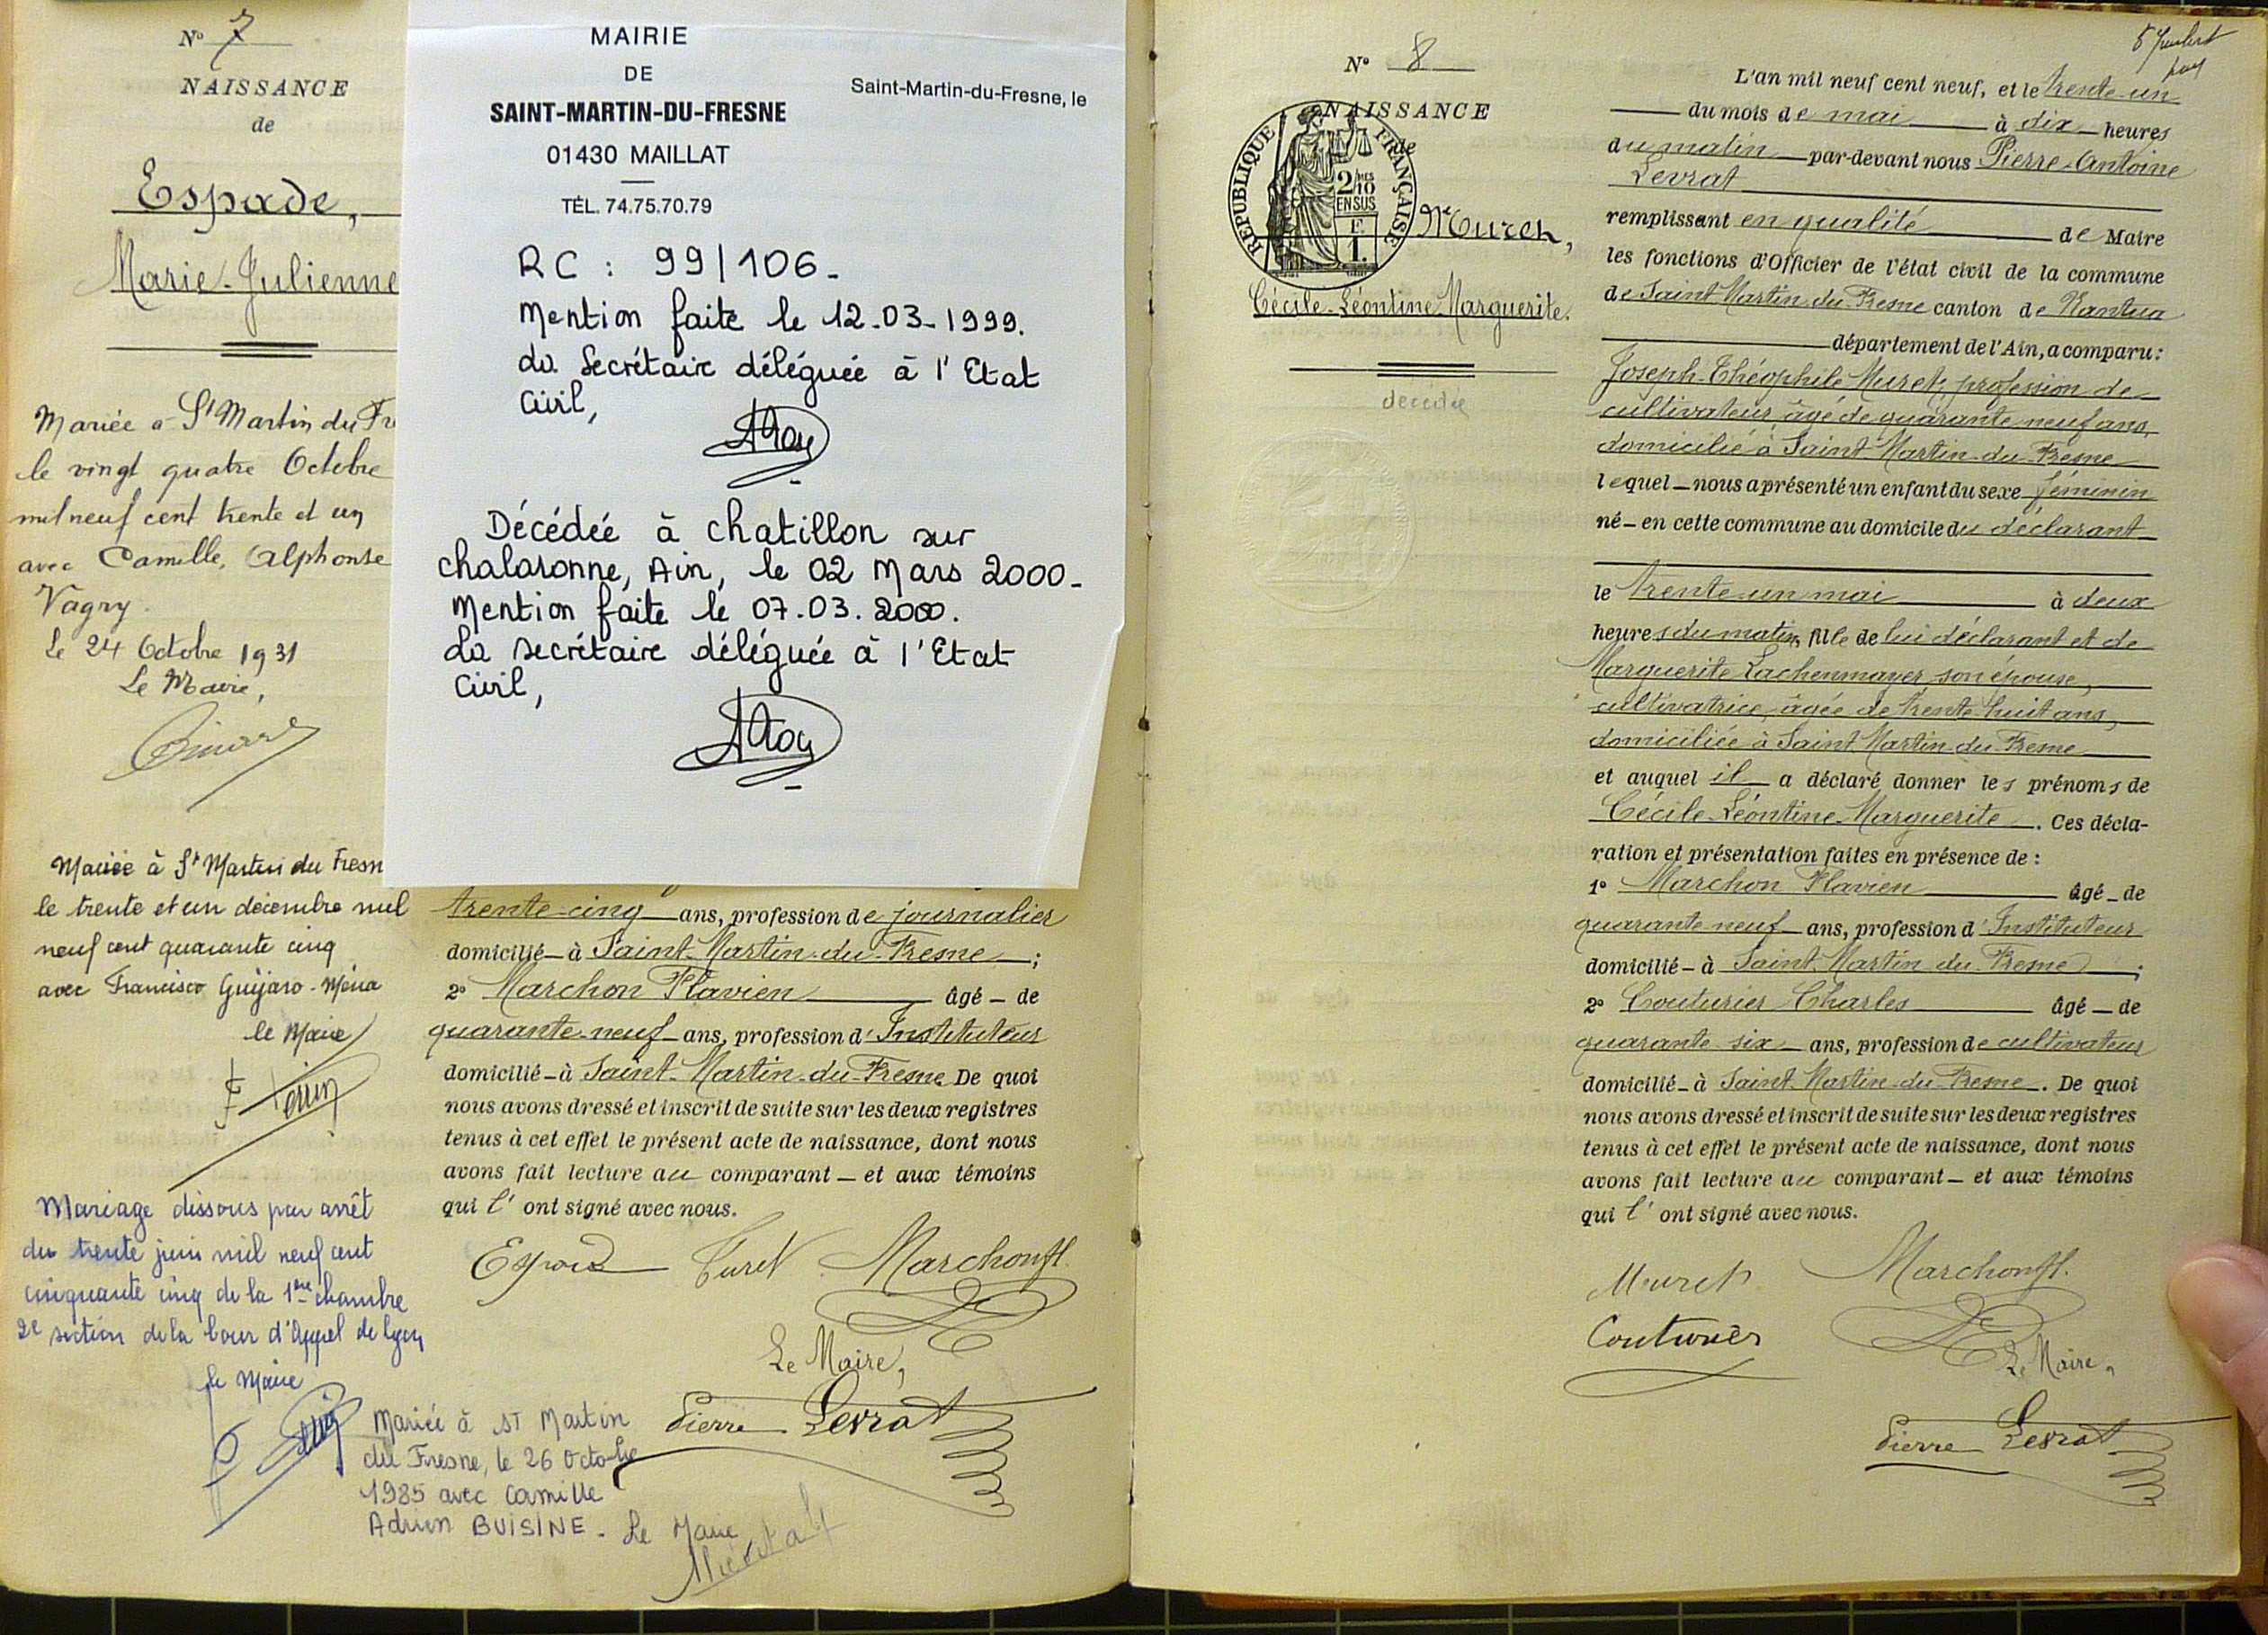 N° 7
NAISSANCE
de
Espade,
Marie-Julienne
Mariée à St Martin du Fr
le vingt quatre Octobre
mil neuf cent trente et un
avec Camille, Alphonse
Vagry.
Le 24 Octobre 1931
Le Maire,
Mariée à St Martin du Fresn
le trente et un décembre mil
neuf cent quarante cinq
avec Francisco Guijaro-Mena
le Maire
Mariage dissous par arrêt
du trente juin mil neuf cent
cinquante cinq de la 1ère chambre
2e section de la Cour d'Appel de Lyon
Le Maire
Mariée à ST Martin
du Fresne, le 26 Octobre
1985 avec Camille
Adrien BUISINE. Le Maire
MAIRIE
DE
SAINT-MARTIN-DU-FRESNE
01430 MAILLAT
TÉL. 74.75.70.79
Saint-Martin-du-Fresne, le
RC : 99/106-
Mention faite le 12-03-1999.
La Secrétaire déléguée à l'Etat
Civil,
Décédée à chatillon sur
chalaronne, Ain, le 02 Mars 2000-
Mention faite le 07.03.2000.
La secrétaire déléguée à l'Etat
Civil,
trente-cinq ans, profession de journalier
domicilié à Saint-Martin-du-Fresne ;
2° Marchon Flavien âgé de
quarante-neuf ans, profession d'Instituteur
domicilié à Saint-Martin-du-Fresne. De quoi
nous avons dressé et inscrit de suite sur les deux registres
tenus à cet effet le présent acte de naissance, dont nous
avons fait lecture au comparant et aux témoins
qui l'ont signé avec nous.
Espade Turet Marchon fl.
Le Maire,
Pierre Levrat
N° 8
NAISSANCE
de
RÉPUBLIQUE FRANÇAISE
2/10 EN SUS
1 F.
Muret,
Cécile-Léontine-Marguerite.
décédée
L'an mil neuf cent neuf, et le trente-un
du mois de mai à dix heures
du matin par-devant nous Pierre-Antoine
Levrat
remplissant en qualité de Maire
les fonctions d'Officier de l'état civil de la commune
de Saint-Martin-du-Fresne canton de Nantua
département de l'Ain, a comparu :
Joseph-Théophile Muret, profession de
cultivateur, âgé de quarante-neuf ans,
domicilié à Saint-Martin-du-Fresne
lequel nous a présenté un enfant du sexe féminin
né en cette commune au domicile du déclarant
le trente-un mai à deux
heures du matin, fille de lui déclarant et de
Marguerite Lachenmayer son épouse,
cultivatrice, âgée de trente-huit ans,
domiciliée à Saint-Martin-du-Fresne
et auquel il a déclaré donner les prénoms de
Cécile-Léontine-Marguerite. Ces décla-
ration et présentation faites en présence de :
1° Marchon Flavien âgé de
quarante-neuf ans, profession d'Instituteur
domicilié à Saint-Martin-du-Fresne ;
2° Couturier Charles âgé de
quarante-six ans, profession de cultivateur
domicilié à Saint-Martin-du-Fresne. De quoi
nous avons dressé et inscrit de suite sur les deux registres
tenus à cet effet le présent acte de naissance, dont nous
avons fait lecture au comparant et aux témoins
qui l'ont signé avec nous.
Muret Marchon fl.
Couturier
Le Maire,
Pierre Levrat